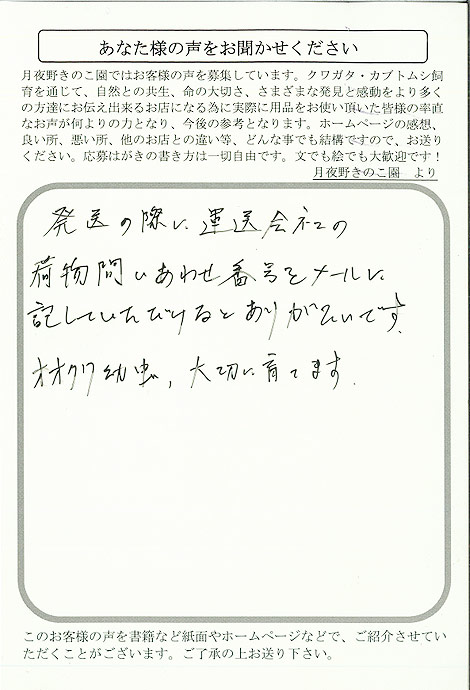 あなた様の声をお聞かせください
月夜野きのこ園ではお客様の声を募集しています。クワガタ・カブトムシ飼
育を通じて、自然との共生、命の大切さ、さまざまな発見と感動をより多く
の方達にお伝え出来るお店になる為に実際に用品をお使い頂いた皆様の率直
なお声が何よりの力となり、今後の参考となります。ホームページの感想、
良い所、悪い所、他のお店との違い等、どんな事でも結構ですので、お送り
ください。応募はがきの書き方は一切自由です。文でも絵でも大歓迎です！
月夜野きのこ園 より
発送の際に運送会社の
荷物問いあわせ番号をメールに
記していただけるとありがたいです.
オオクワ幼虫, 大切に育てます.
このお客様の声を書籍など紙面やホームページなどで、ご紹介させてい
ただくことがございます。ご了承の上お送り下さい。